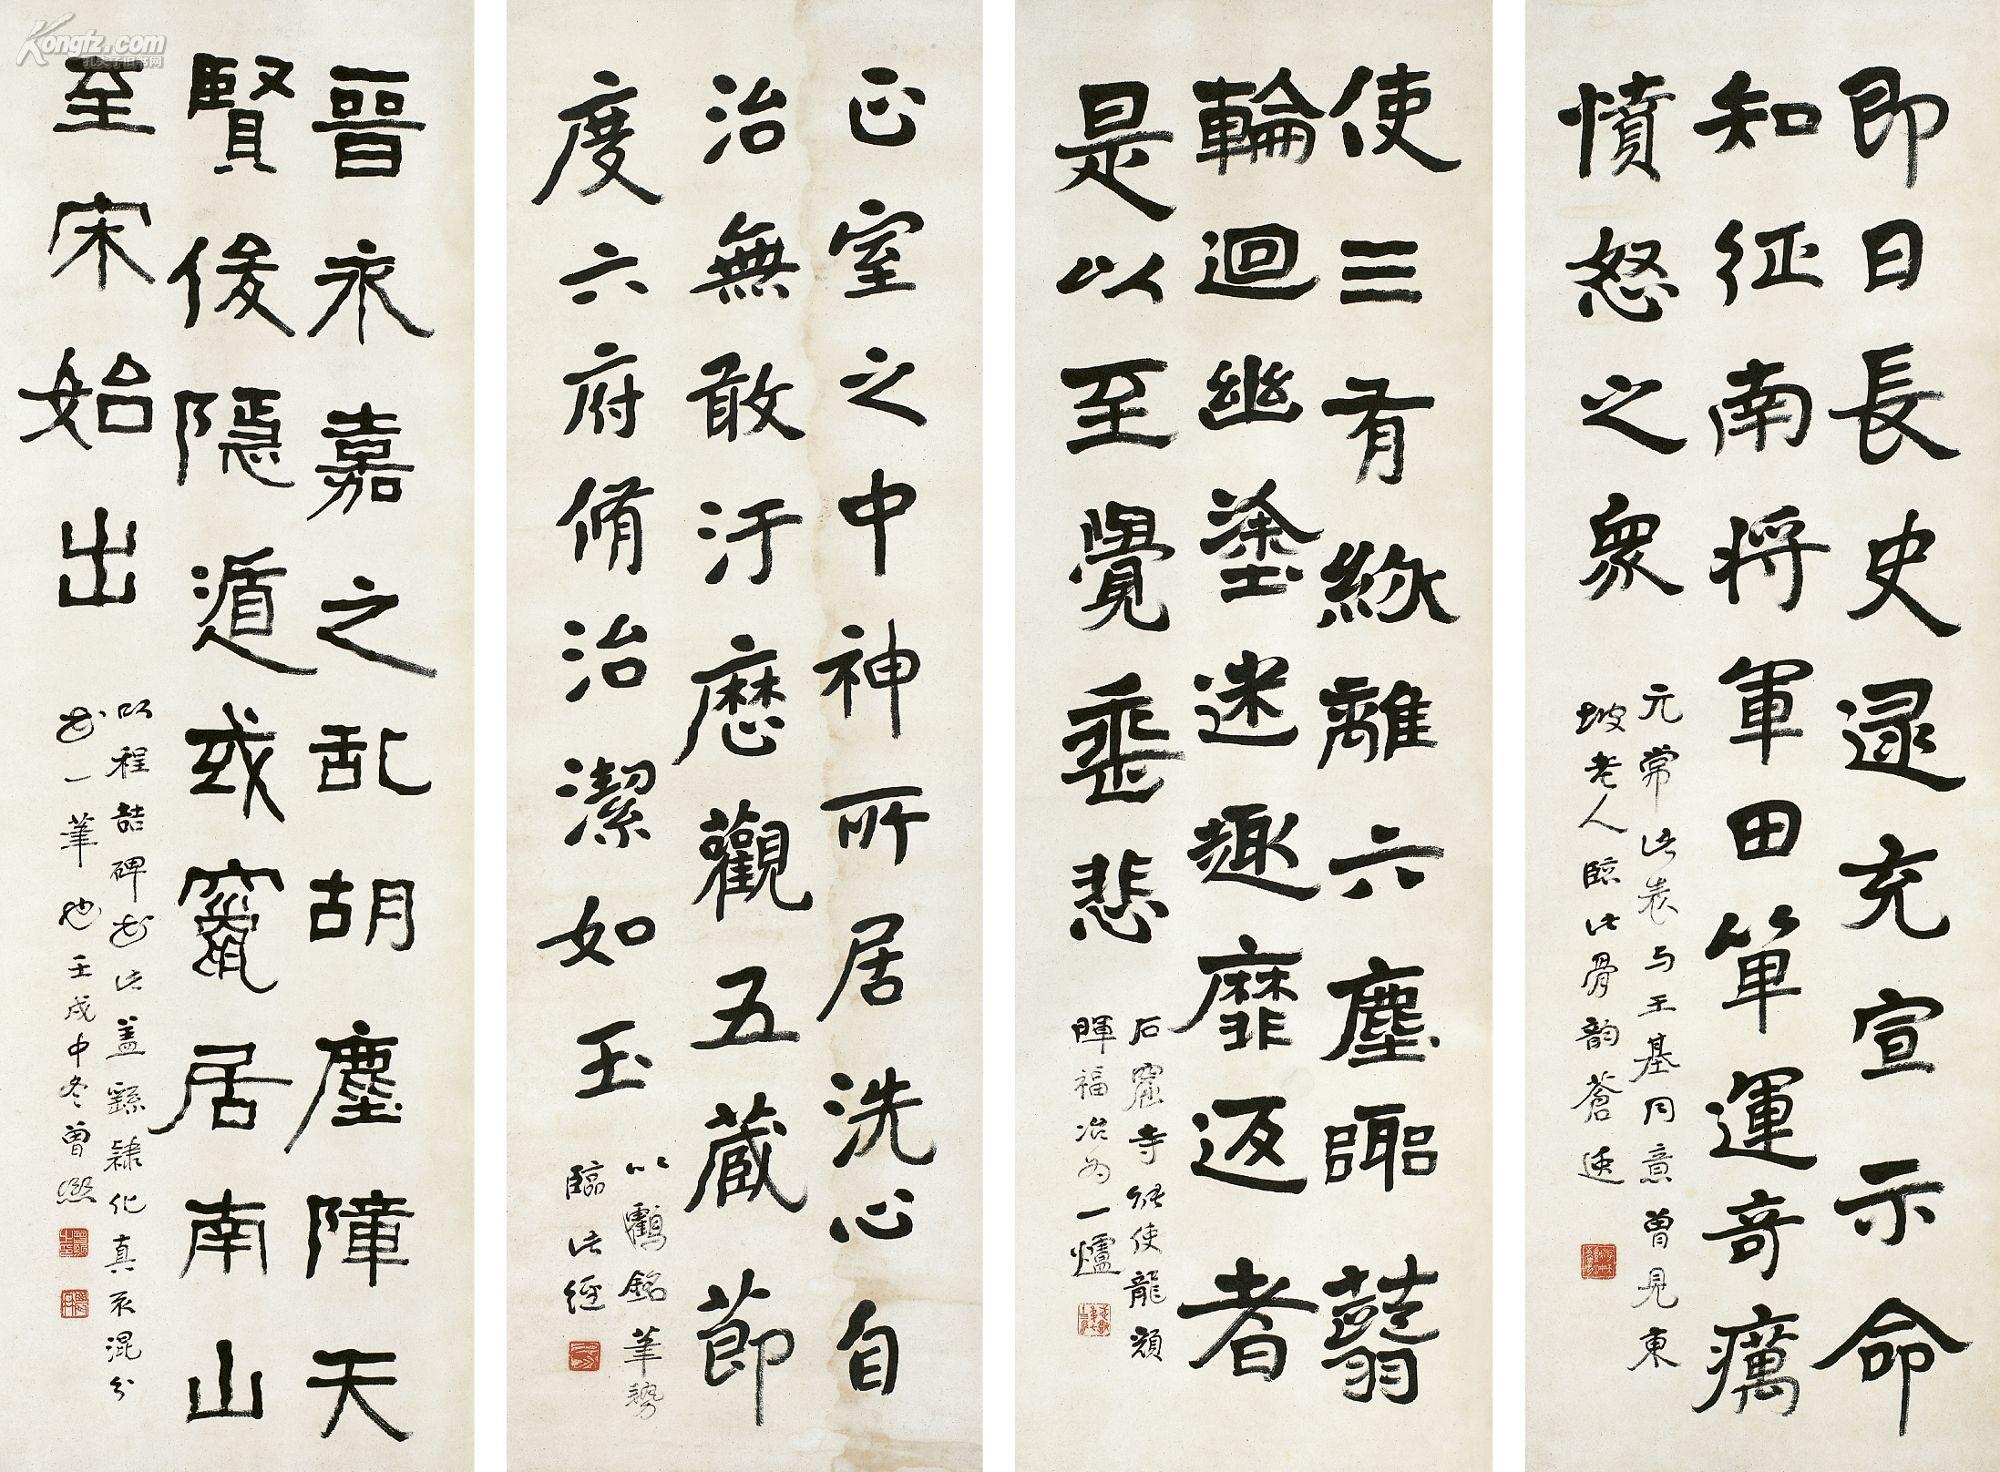 即日長史逯充宣示命
知征南将軍田單運奇厲
憤怒之眾
元常此表与王基同意曾見東
坡老人臨此骨韵蒼逸
使三有緣離六塵
輪迴幽塗迷趣靡返者
是以至覺垂悲
石窟寺能使龍顏
暉福冶為一爐
正室之中神所居洗心自
治無敢汙歷觀五藏節
度六府脩治潔如玉
以鶴銘筆勢
臨此經
晉永嘉之乱胡塵障天
賢俊隱遁或竄居南山
至宋始出
以程喆碑書此蓋繇隸化真不混分
書一筆也壬戌中冬曾熙
Kongfz.com
孔夫子旧书网